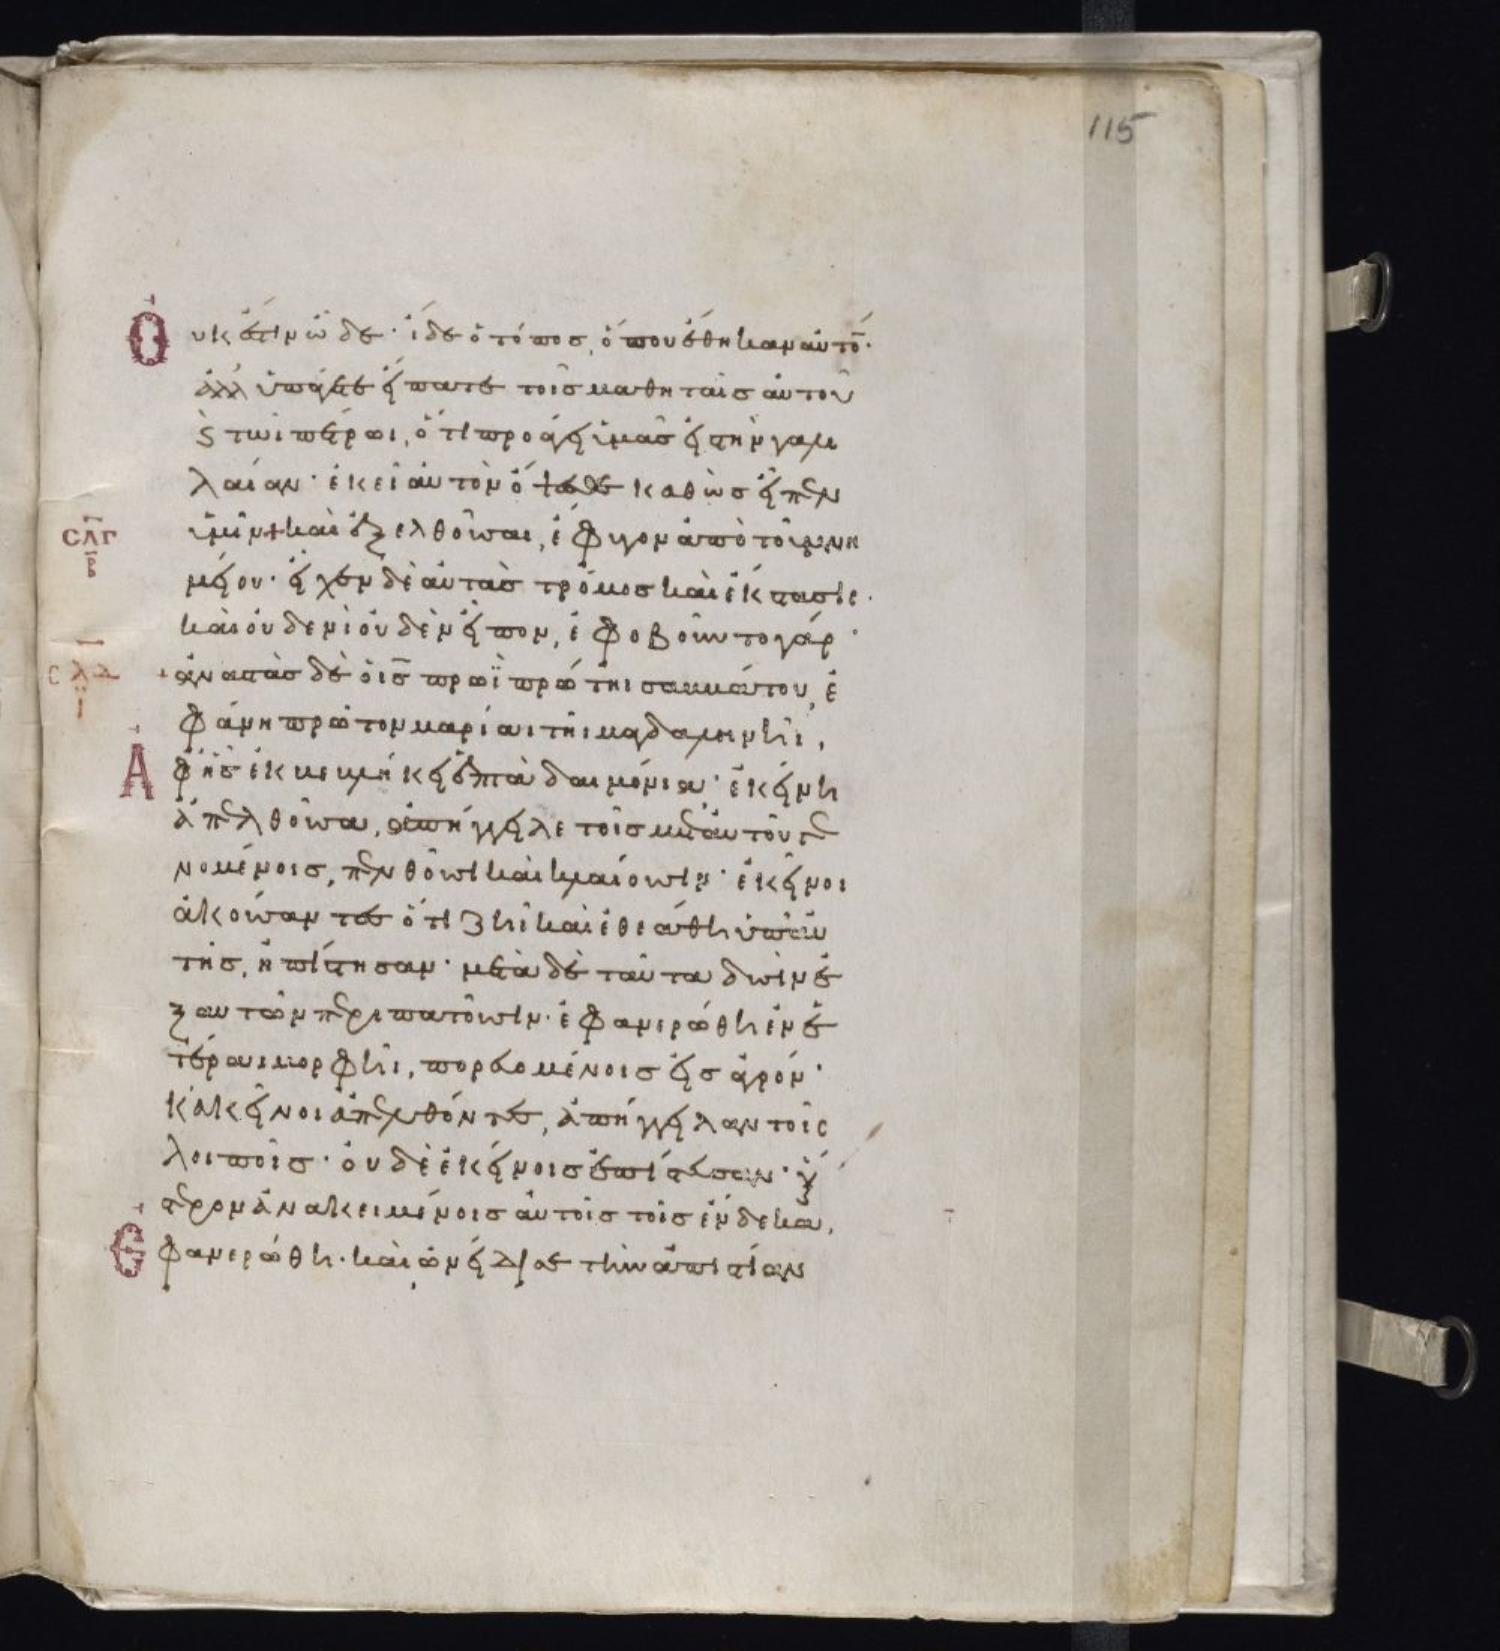 115
Οὐκ ἔστιν ὧδε· ἴδε ὁ τόπος, ὅπου ἔθηκαν αὐτό̅·
ἀλλ ὑπάγετε εἴπατε τοῖς μαθηταῖς αὐτοῦ
ϛ τῶι πέτρωι, ὅτι προάγει ὑμᾶς εἰς τὴν γαλι
λαίαν· ἐκεῖ αὐτὸν ὄψεσθε καθὼς εἶπεν
σ̅λ̅γ̅ ὑμῖν + καὶ ἐξελθοῦσαι, ἔφυγον ἀπὸ τοῦ μνη
μείου· εἶχεν δὲ αὐτὰς τρόμος καὶ ἔκστασις·
καὶ οὐδενὶ οὐδὲν εἶπον, ἐφοβοῦντο γάρ·
σ̅λ̅δ̅ + ἀναστὰς δὲ ὁ ις̅ πρωῒ πρώτηι σαββάτου, ἐ
φάνη πρῶτον μαρίαι τῆι μαγδαληνῆι,
Ἀφ ἧς ἐκβεβλήκει ἑπτὰ δαιμόνια· ἐκείνη
ἀπελθοῦσα, ἀπήγγειλε τοῖς μετ αὐτοῦ γε
νομένοις, πενθοῦσι καὶ κλαίουσιν· ἐκεῖνοι
ἀκούσαντες ὅτι ζῆ καὶ ἐθεάθη ὑπ αὐ
τῆς, ἠπίστησαν· μετὰ δὲ ταῦτα δυσὶν ἐ
ξ αυτῶν περιπατοῦσιν· ἐφανερώθη ἐν ἑ
τέραι μορφῆι, πορευομένοις εἰς ἀγρόν·
κἀκεῖνοι ἀπελθόντες, ἀπήγγειλαν τοῖς
λοιποῖς· οὐδὲ ἐκείνοις ἐπίστευσαν· ὕ
στερον ἀνακειμένοις αὐτοῖς τοῖς ἕνδεκα,
Ἐφανερώθη· καὶ ὠνείδισε τὴν ἀπιστίαν